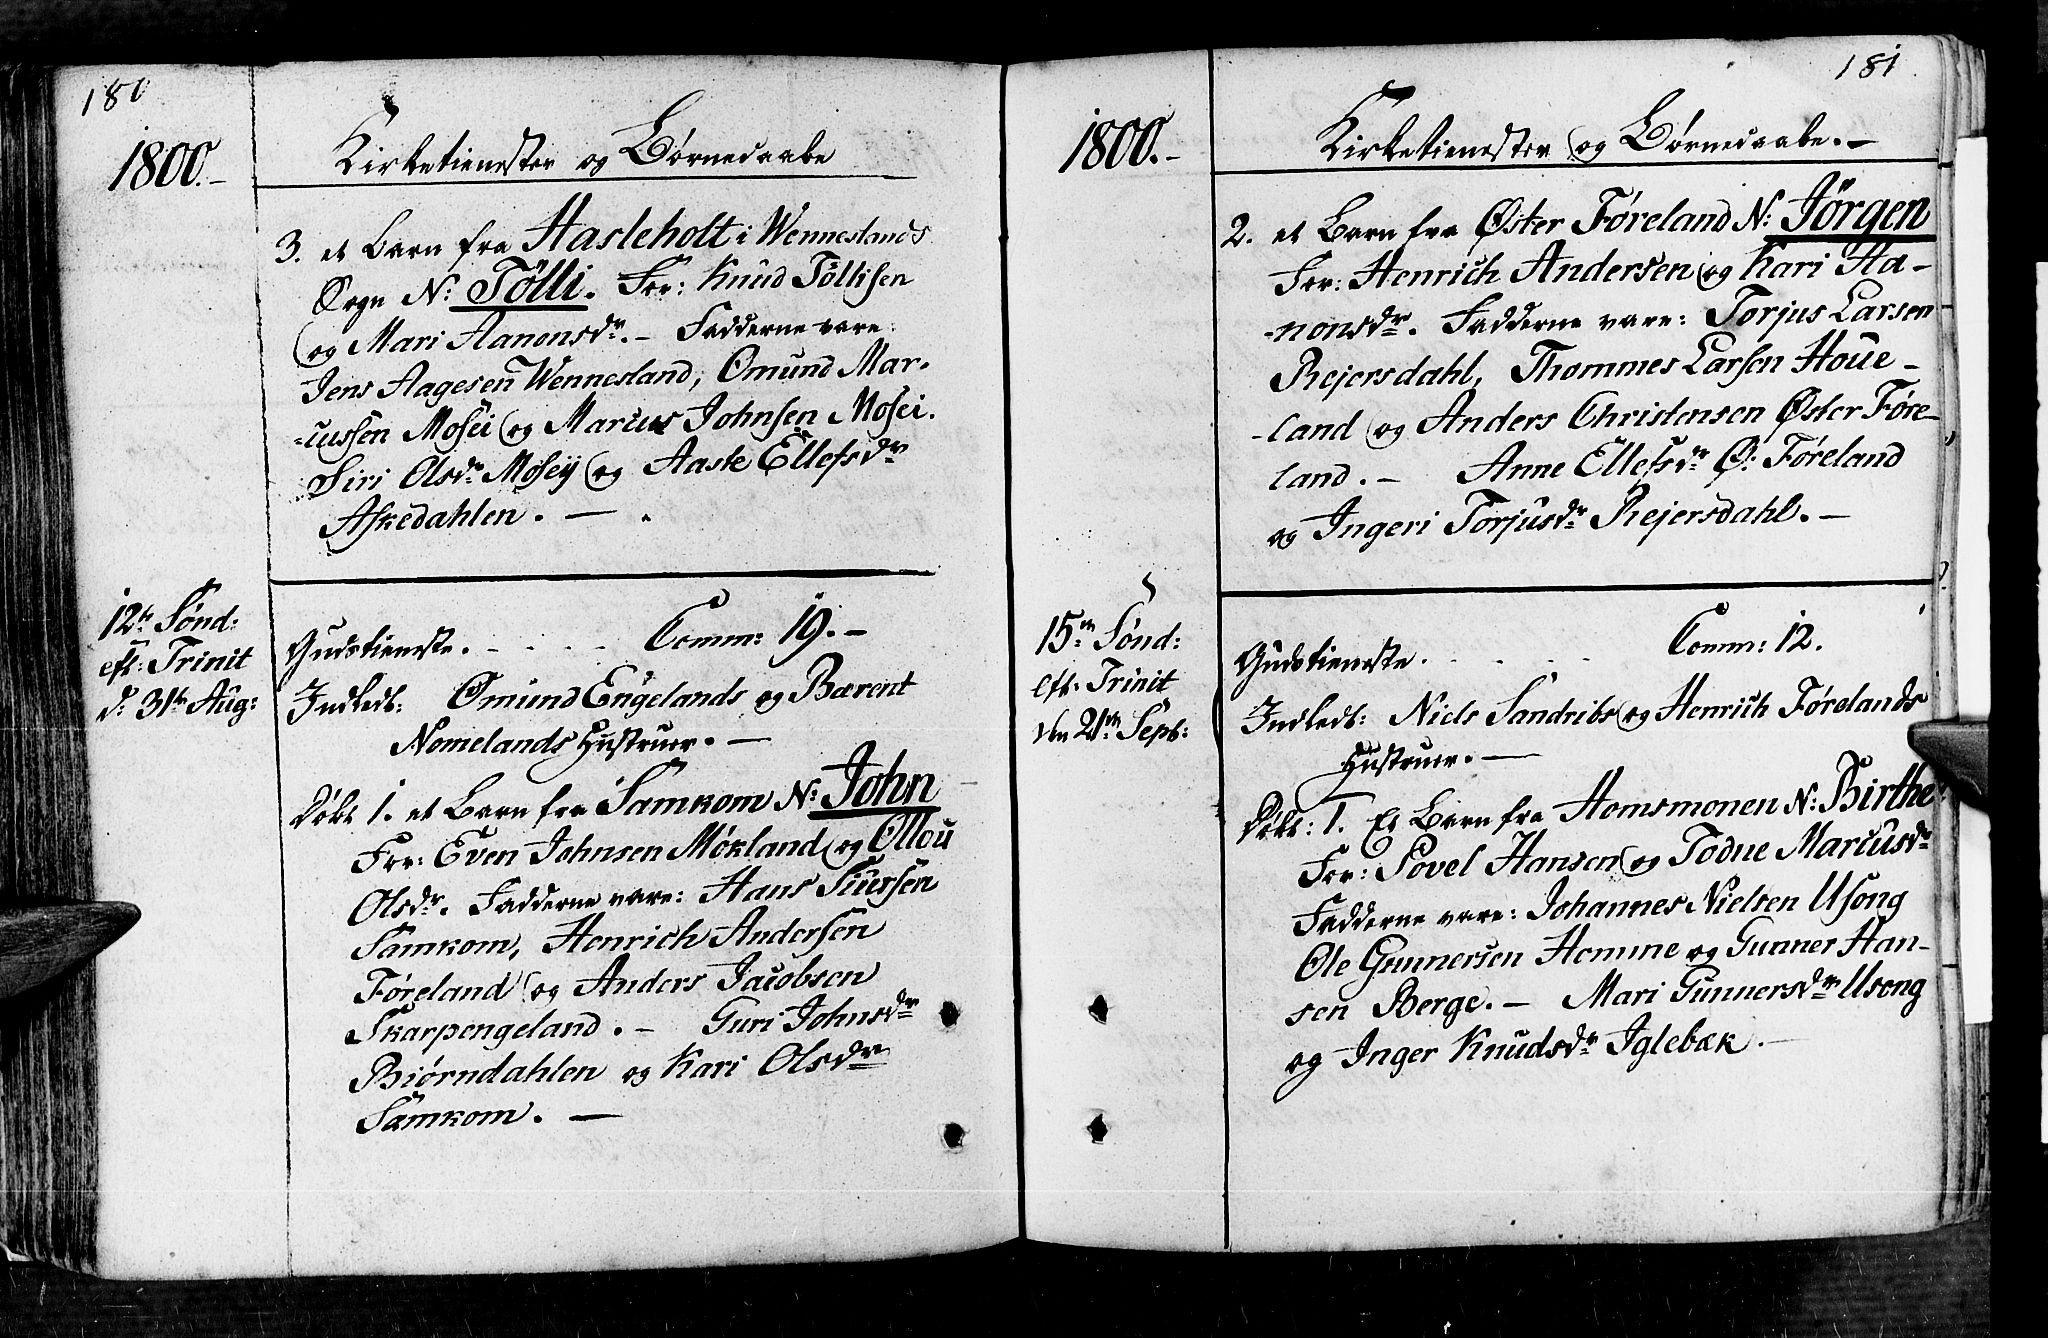 180
1800.-
Kirketienester og Börnedaabe
3. et Barn fra Hasleholt i Wenneslands
Sogn N: Tölli. For: Knud Töllisen
og Mari Aanonsdr.- Fadderne vare:
Jens Aagesen Wennesland, Omund Mar-
-cussen Mosei og Marcus Johnsen Mosei.
Siri Olsdr Mosey og Aaste Ellefsdr
Askedahlen. -
12te Sönd:
eft: Trinit
d: 31te Aug:
Gudstieneste. - - - - Comm: 19.-
Indledt: Omund Engelands og Bærent
Nomelands Hustruer.-
Döbt 1. et Barn fra Samkom N: John
For: Even Johnsen Mökland og Ollou
Olsdr. Fadderne vare: Hans Siursen
Samkom, Henrich Andersen
Föreland og Anders Jacobsen
Skarpengeland.- Guri Johnsdr
Biörndahlen og Kari Olsdr
Samkom. -
181
1800.-
Kirketienester og Börnedaabe.-
2. et Barn fra Øster Føreland N: Jörgen
For: Henrich Andersen og Kari Aa-
-nonsdr. Fadderne vare: Torjus Larsen
Rejersdahl, Thommes Larsen Houe-
-land og Anders Christensen Øster Føre-
land.- Anne Ellefsdr Ø: Føreland
og Ingeri Torjusdr Rejersdahl.-
15de Sönd:
eft: Trinit
den 21de Sept:
Gudstieneste. - - - - Comm: 12.
Indledt: Niels Sandribs og Henrich Førelands
Hustruer.-
Döbt: 1. Et Barn fra Homsmonen N: Birthe
For: Povel Hansen og Todne Marcusdr
Fadderne vare: Johannes Nielsen Usong
Ole Gunnersen Homme og Gunner Han-
sen Berge.- Mari Gunnersdr Usong
og Inger Knudsdr Iglebæk.-